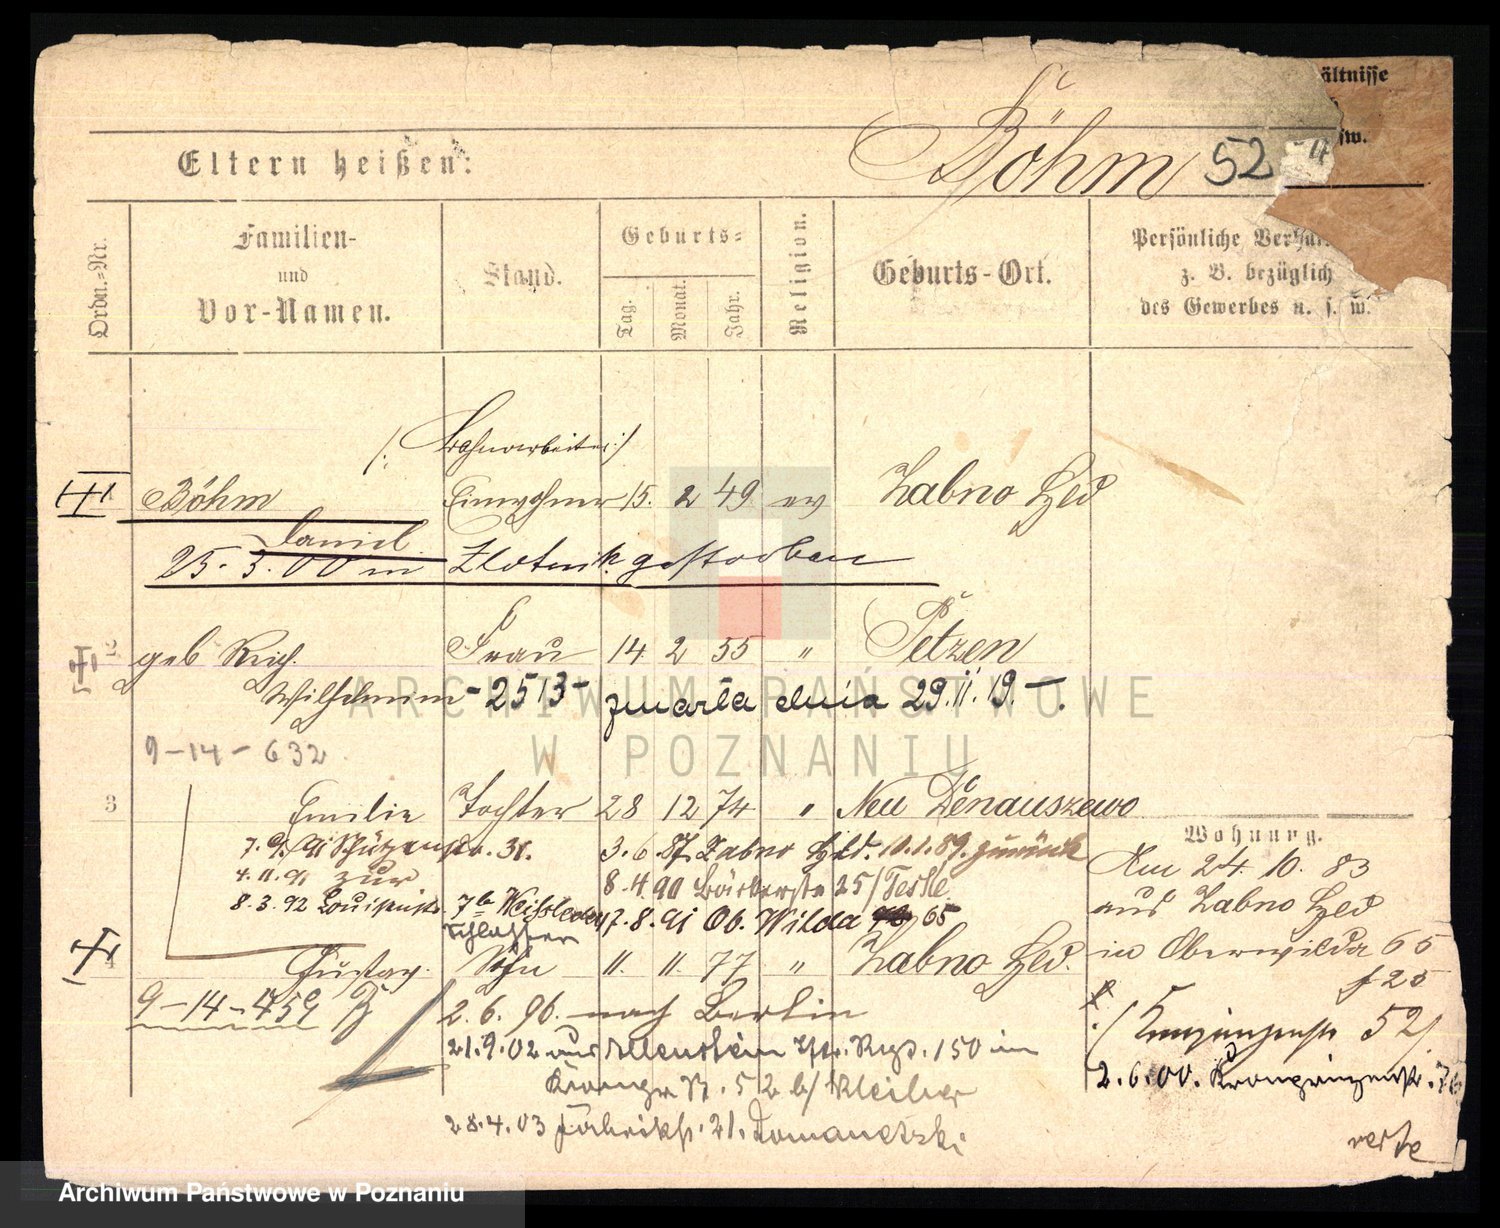 ältnisse
sw.
Böhm 52
Eltern heißen:
Ordn.-Nr.
Familien-
und
Vor-Namen.
Stand.
Geburts-
Tag.
Monat.
Jahr.
Religion.
Geburts-Ort.
Persönliche
z. B. bezüglich
des Gewerbes u. s. w.
/: Bahnarbeiter :/
Böhm Einwohner 15. 2 49 ev Zabno Hld
Daniel
25. 3. 00 in Zlotnik gestorben
2
geb Frau 14 2 55 " Petzen
Wilhelmine - 2513 - zmarła dnia 29.II.19. -
9-14-632
3 Emilie Tochter 28 12 74 " Neu Denauszewo
Wohnung.
7. 9. 91 Schützenstr. 31. 3. 6. 87 Zabno Hld. 11.1.89. zurück
4. 11. 91 zur 8. 4. 90 25/ Teske
8. 3. 92 7. 8. 91 Ob. Wilda 65
Am 24. 10. 83
aus Zabno Hld
in Oberwilda 65
4 Gustav. Sohn 11. 11. 77 " Zabno Hld.
f 25
9-14-459
2. 6. 96. nach Berlin
52/
21. 9. 02 aus Allenstein Inf. Reg. 150 in
2. 6. 00. Kronprinzenstr. 76
Kronpr. N. 52 b/
28. 4. 03 Fabrikstr. 21. Domanetzki
Archiwum Państwowe
w Poznaniu
Archiwum Państwowe w Poznaniu